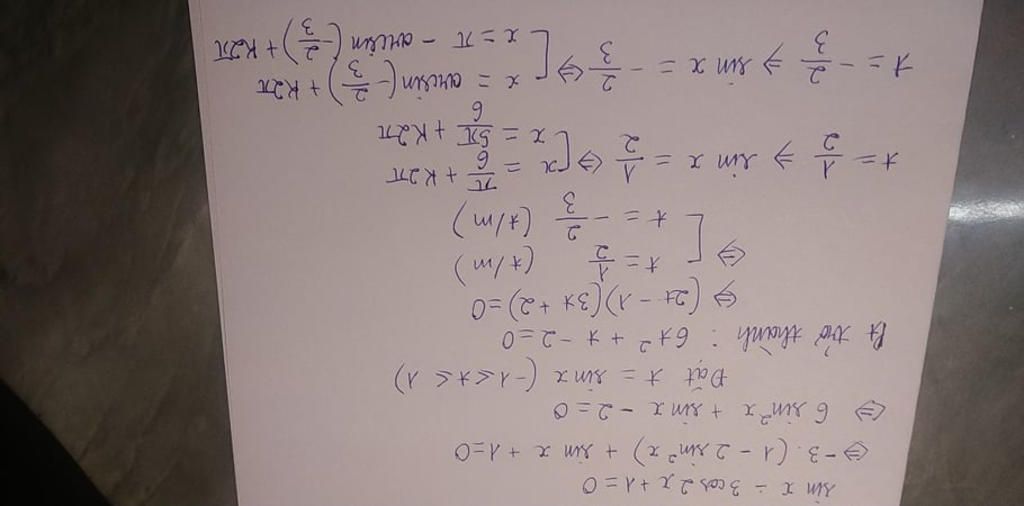 sin x - 3cos 2x + 1 = 0
⇔ -3. (1 - 2 sin² x) + sin x + 1 = 0
⇔ 6 sin² x + sin x - 2 = 0
Đặt t = sin x (-1 ≤ t ≤ 1)
Pt trở thành : 6t² + t - 2 = 0
⇔ (2t - 1)(3t + 2) = 0
⇔ [ t = 1/2 (t/m)
t = -2/3 (t/m)
t = 1/2 ⇒ sin x = 1/2 ⇔ [ x = π/6 + K2π
x = 5π/6 + K2π
t = -2/3 ⇒ sin x = -2/3 ⇔ [ x = arcsin (-2/3) + K2π
x = π - arcsin (-2/3) + K2π